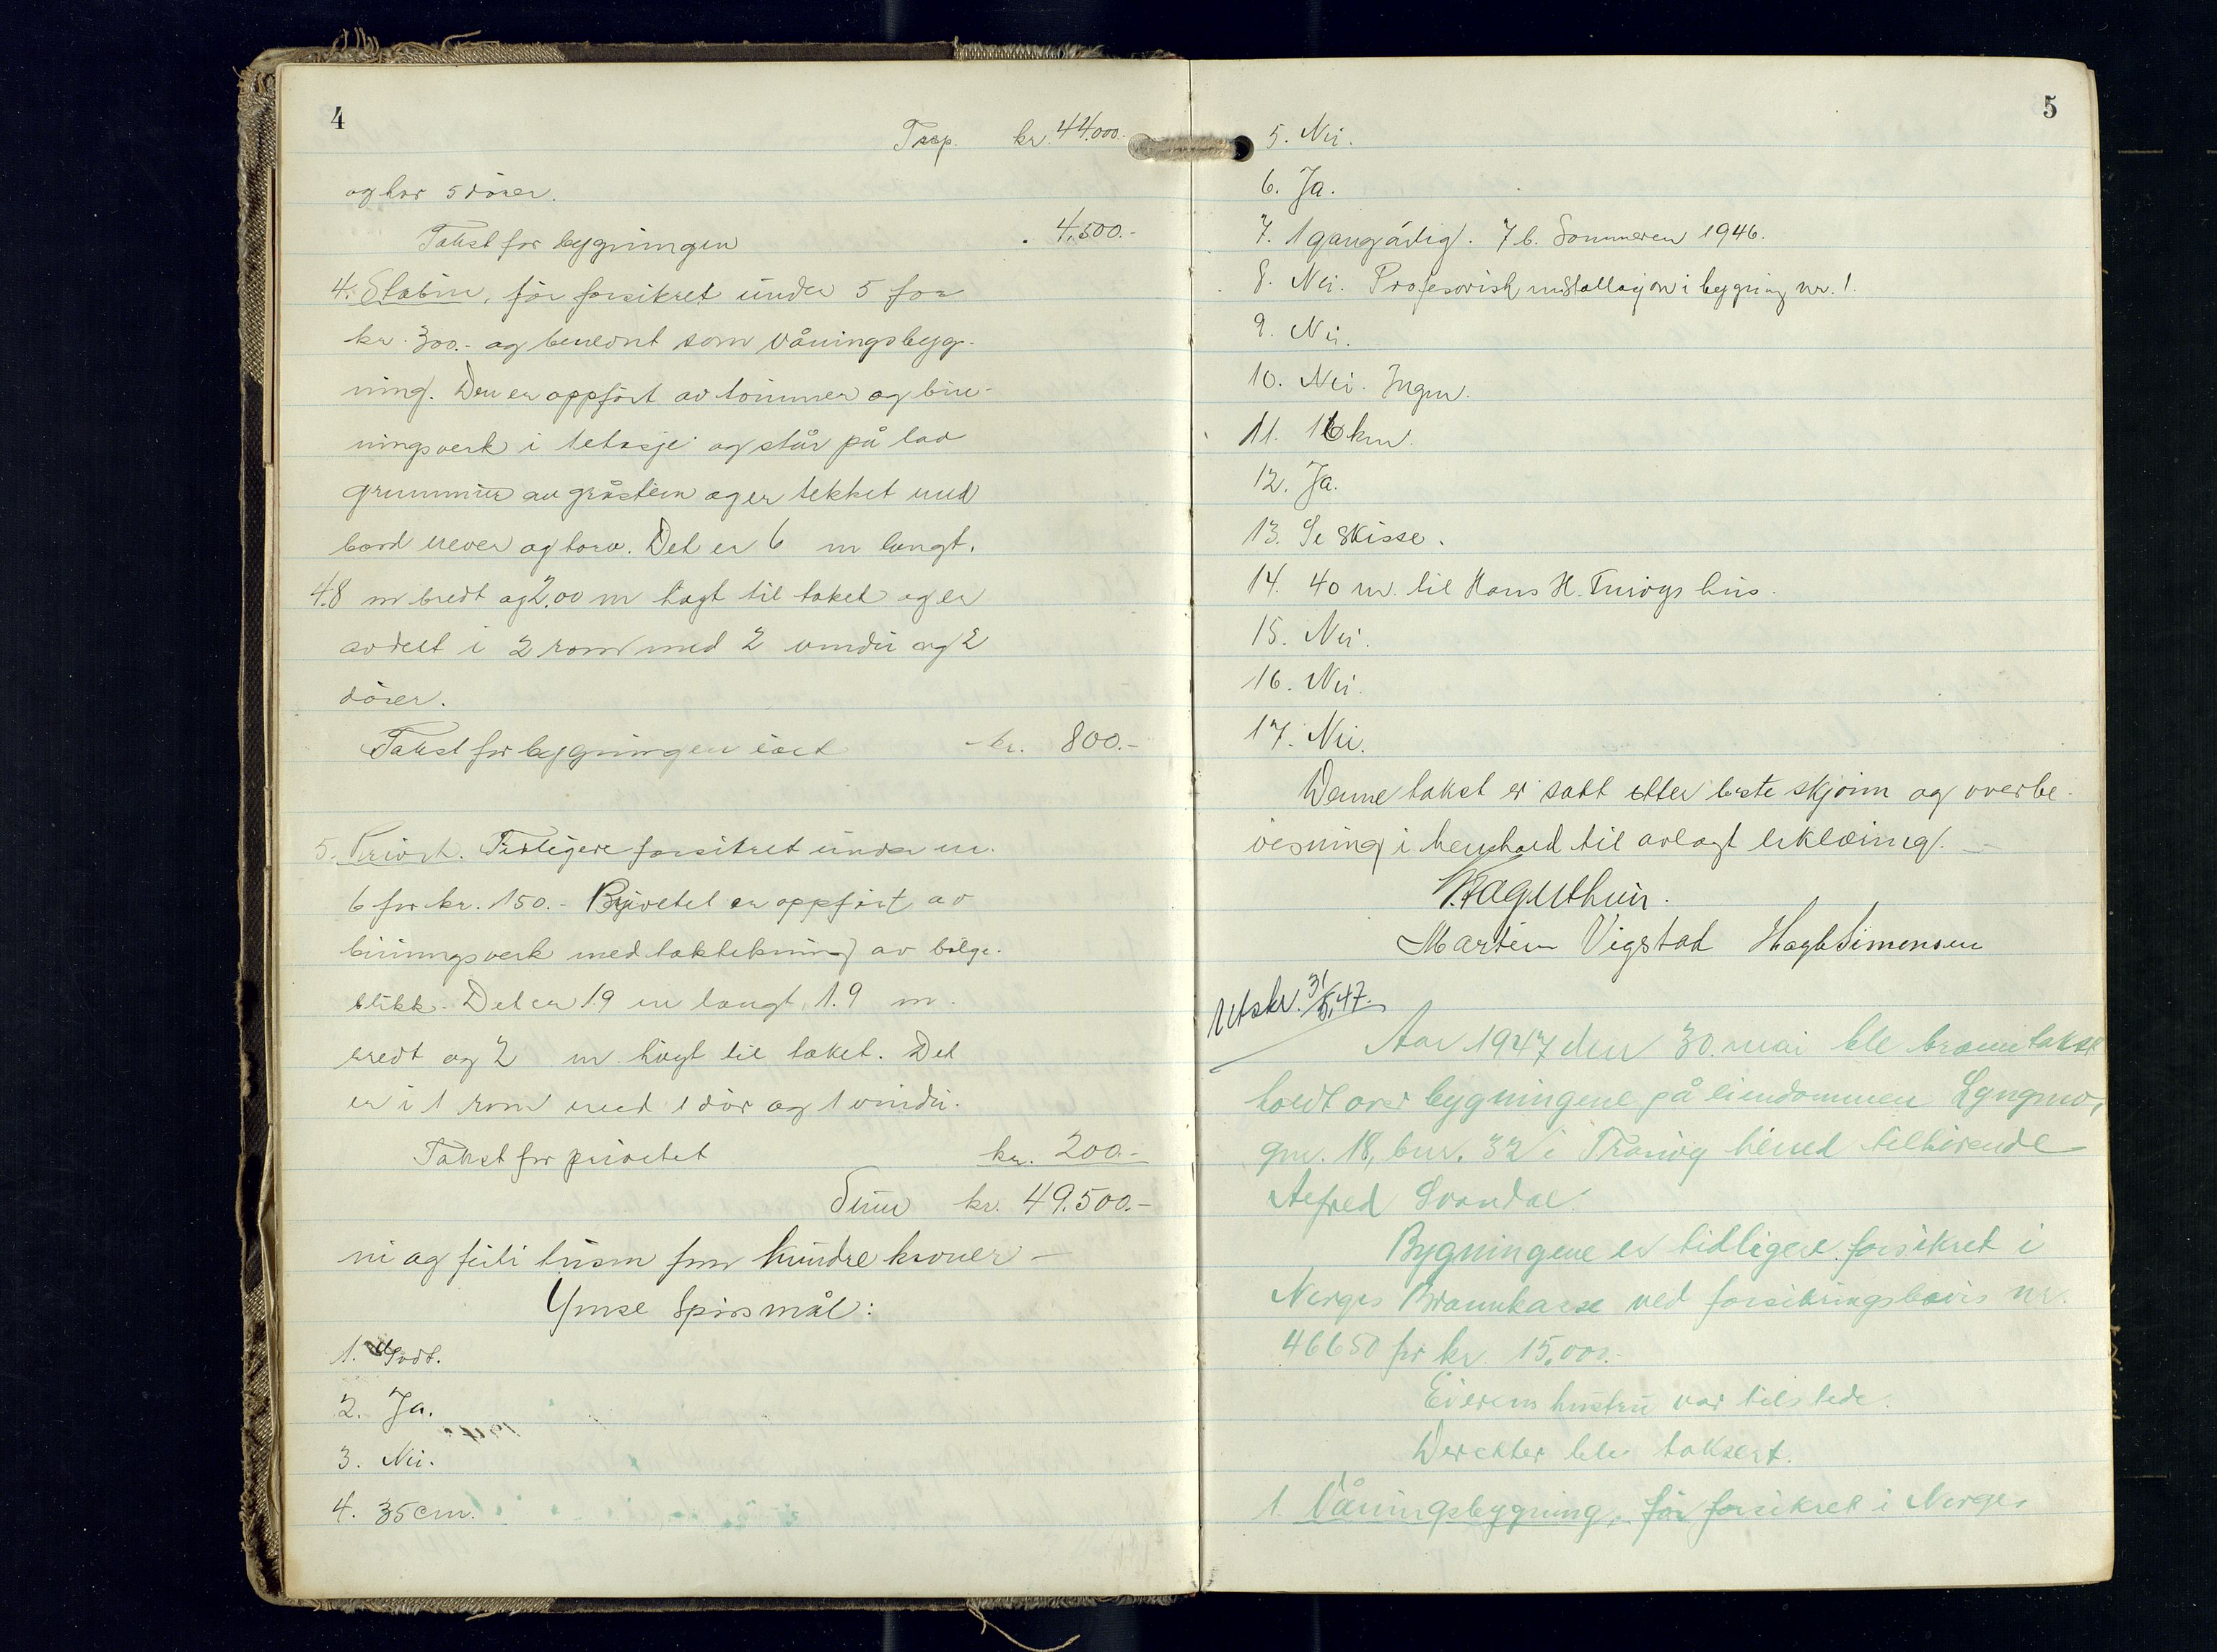 4
Trsp. kr. 44.000.-
og har 5 dører.
Takst for bygningen . 4.500.-
4. Stabur, før forsikret under 5 for
kr. 300.- og benevnt som våningsbyg-
ning. Den er oppført av tømmer og bin-
ningsverk i 1 etasje og står på lav
grunnmur av gråstein og er tekket med
bord never og torv. Det er 6 m langt.
4.8 m bredt og 2.00 m høgt til taket og er
avdelt i 2 rom med 2 vindu og 2
dører.
Takst for bygningen kr. 800.-
5. Privet. Tidligere forsikret under nr.
6 for kr. 150.- Privetet er oppført av
binningsverk med taktekning av bølge-
blikk. Det er 1.9 m langt, 1.9 m
bredt og 2 m. høgt til taket. Det
er i 1 rom med 1 dør og 1 vindu.
Takst for privetet kr. 200.-
Sum kr. 49.500.-
ni og førti tusen fem hundre kroner -
Ymse spørsmål:
1. Godt.
2. Ja.
3. Nei.
4. 35 cm.
5
5. Nei.
6. Ja.
7. 1 gang årlig. 7 b. Sommeren 1946.
8. Nei. Profesorisk installasjon i bygning nr. 1.
9. Nei.
10. Nei. Ingen.
11. 16 km.
12. Ja.
13. Se skisse.
14. 40 m. til Hans H. hus.
15. Nei.
16. Nei.
17. Nei.
Denne takst er satt etter beste skjønn og overbe-
visning i henhold til avlagt erklæring. -
K. Fagerthun.
Martin Vigstad Hagb. Simonsen
Utskr. 31/5.47.
Aar 1947 den 30. mai ble branntakst
holdt over bygningene på eiendommen Lyngmo,
gnr. 18, bnr. 32 i Tranøy herred tilhørende
Alfred Svandal.
Bygningene er tidligere forsikret i
Norges Brannkasse ved forsikringsbevis nr.
46650 for kr. 15.000.-
Eierens hustru var tilstede.
Deretter ble taksert.
1. Våningsbygning, før forsikret i Norges